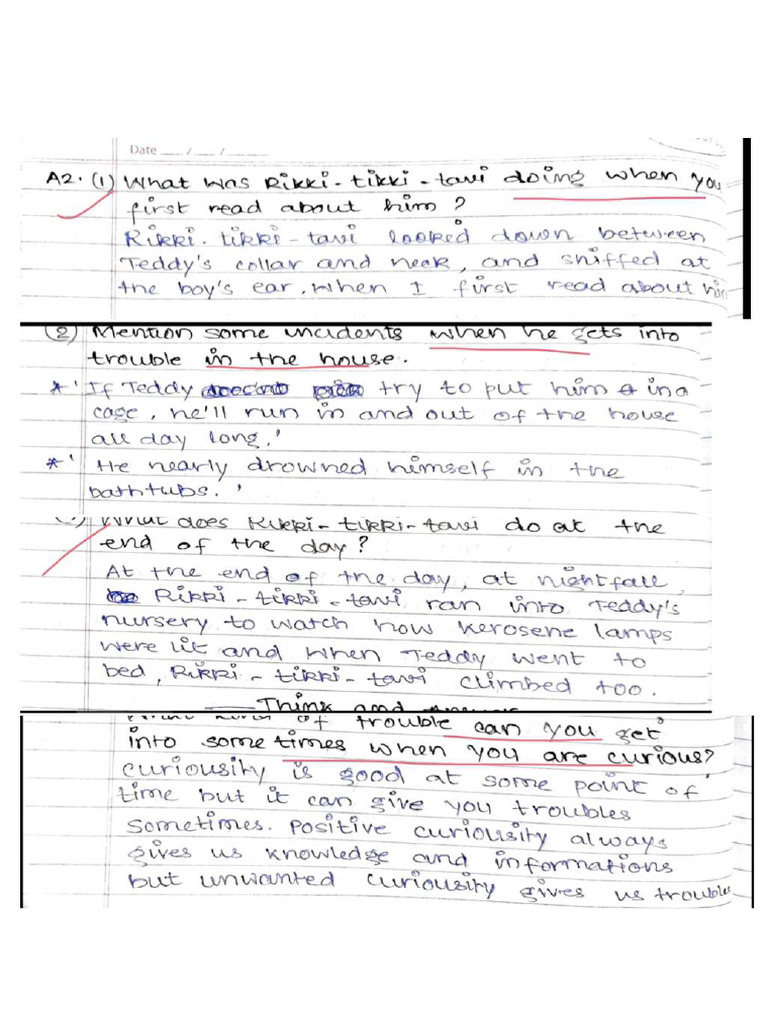 Date ___/___/___
A2. (1) What was Rikki-tikki-tavi doing when you
first read about him?
Rikki-tikki-tavi looked down between
Teddy's collar and neck, and sniffed at
the boy's ear, when I first read about him
(2) Mention some incidents when he gets into
trouble in the house.
* 'If Teddy try to put him in a
cage, he'll run in and out of the house
all day long.'
* 'He nearly drowned himself in the
bathtubs.'
What does Rikki-tikki-tavi do at the
end of the day?
At the end of the day, at nightfall,
Rikki-tikki-tavi ran into Teddy's
nursery to watch how kerosene lamps
were lit and when Teddy went to
bed, Rikki-tikki-tavi climbed too.
Think and
of trouble can you get
into sometimes when you are curious?
curiousity is good at some point of
time but it can give you troubles
sometimes. Positive curiousity always
gives us knowledge and informations
but unwanted curiousity gives us troubles